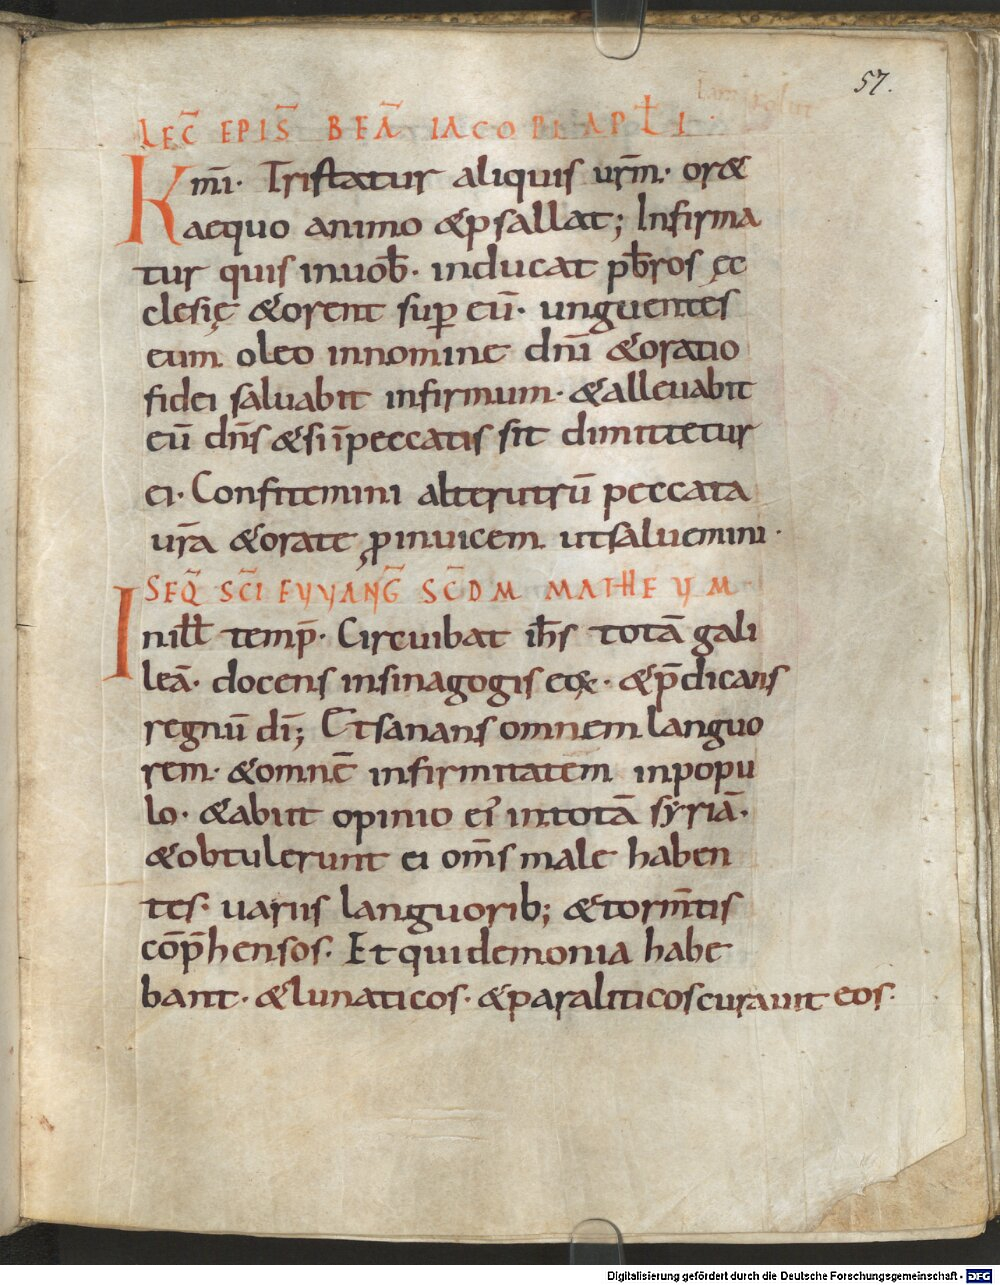 57.
LEC̄ EPIS̄ BEĀ IACOBI APŁI·
Km̄i· Tristatur aliquis ur̄m· or&
aequo animo &psallat; Infirma
tur quis inuob̄· inducat pb̄ros ęc
clesię &orent suꝑ eū· unguentes
eum oleo innomine dn̄i &oratio
fidei saluabit infirmum· &alleuabit
eū dn̄s &si īpeccatis sit dimittetur
ei· Confitemini alterutrū peccata
ur̄a &orate ꝓinuicem utsaluemini·
SEQ̄ SC̄I EVVANḠ SC̄DM MATHEVM
Inilł temp̄· Circuibat ih̄s totā gali
leā· docens insinagogis eoꝝ· &p̄dicans
regnū dī; Etsanans omnem languo
rem· &omnē infirmitatem inpopu
lo· &abiit opinio ei' intotā syriā·
&obtulerunt ei om̄s male haben
tes· uariis languorib; &torm̄tis
cōp̄hensos· Et qui demonia habe
bant· &lunaticos· &paraliticos curauit eos·
Digitalisierung gefördert durch die Deutsche Forschungsgemeinschaft - DFG